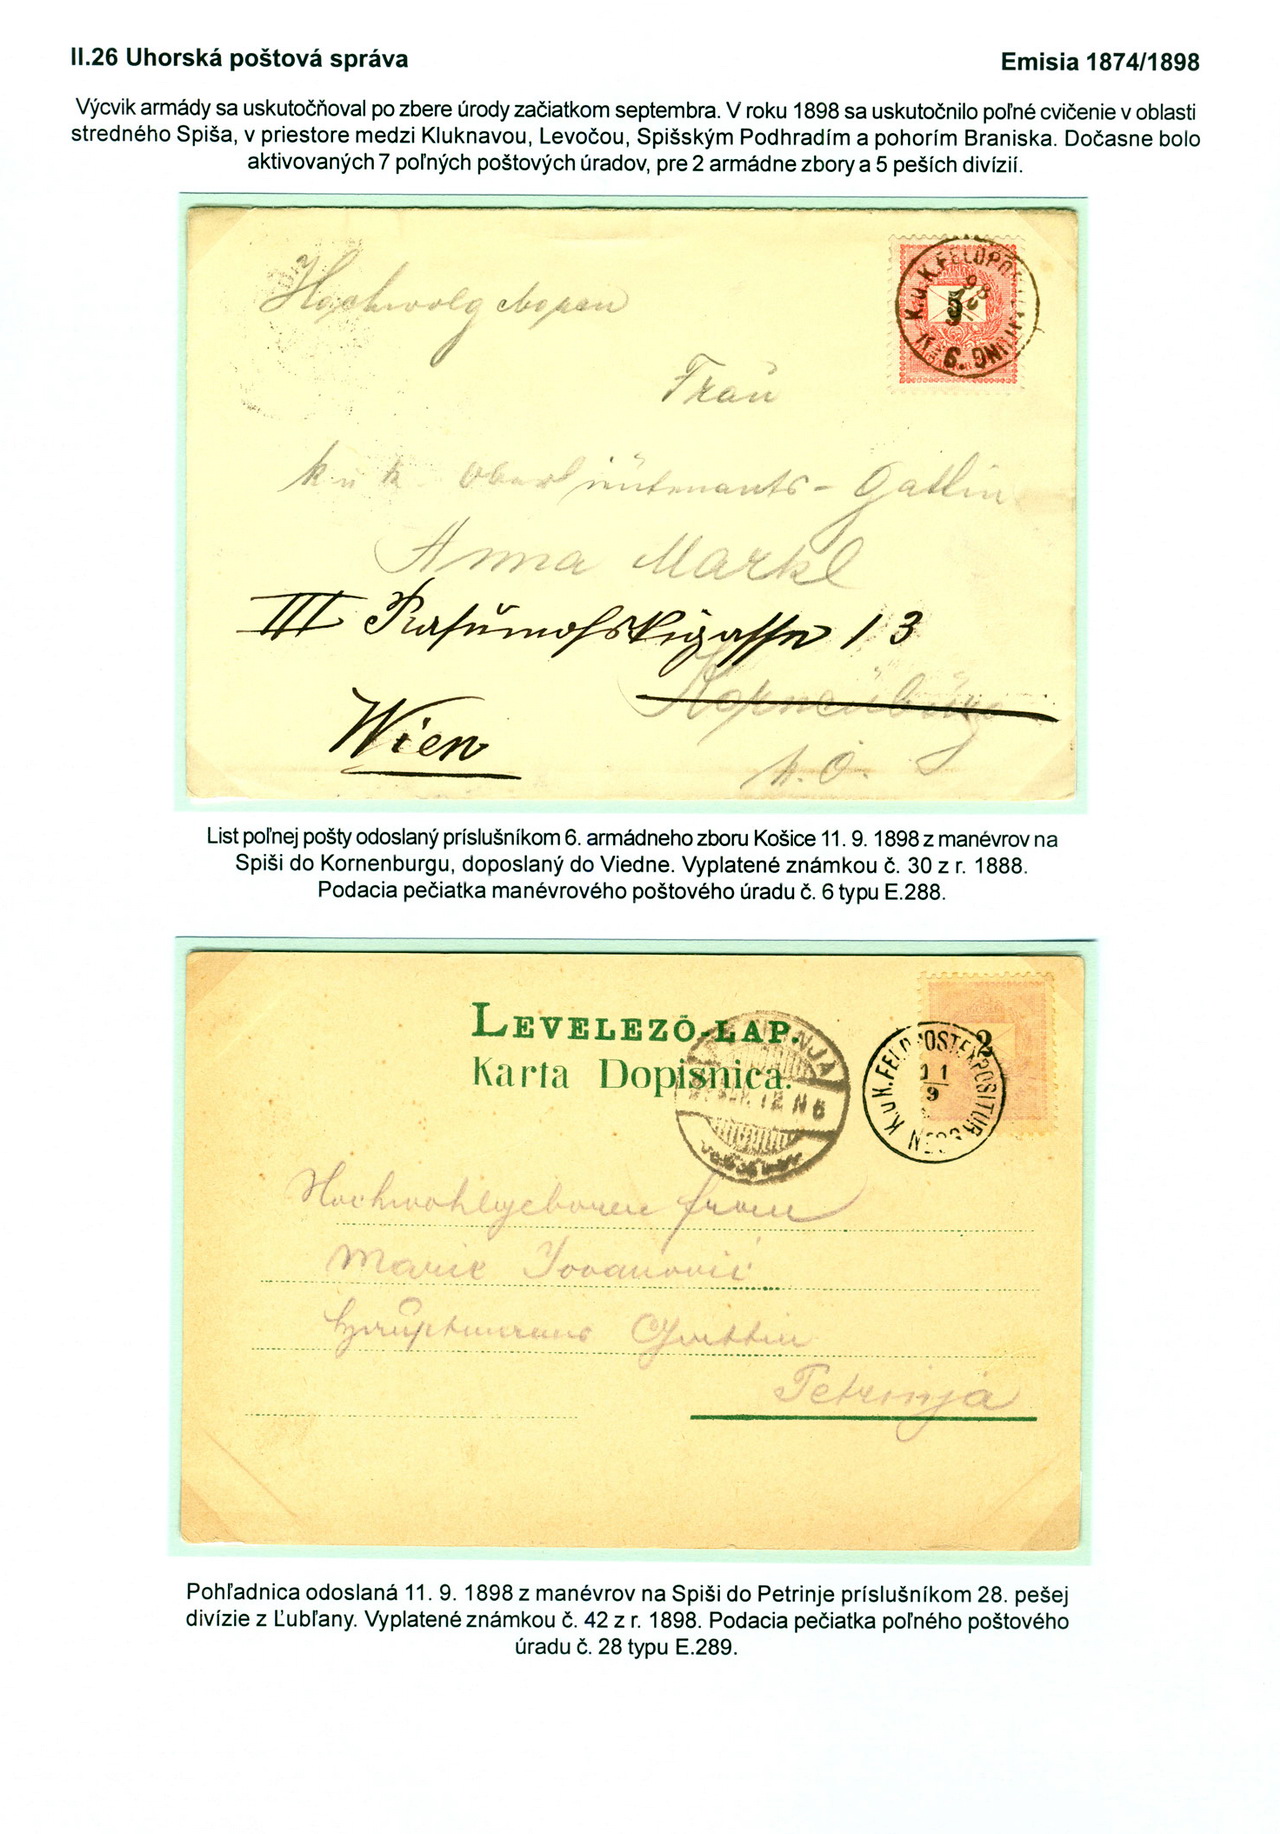 II.26 Uhorská poštová správa
Emisia 1874/1898
Výcvik armády sa uskutočňoval po zbere úrody začiatkom septembra. V roku 1898 sa uskutočnilo poľné cvičenie v oblasti
stredného Spiša, v priestore medzi Kluknavou, Levočou, Spišským Podhradím a pohorím Braniska. Dočasne bolo
aktivovaných 7 poľných poštových úradov, pre 2 armádne zbory a 5 peších divízií.
K.u.K. FELDPO
98
5
6.
Hochwolgeboren
Frau
k u k Oberlieutenants- Gattin
Anna Markl
III Rasumofskigasse 13
Wien
N. Ö.
List poľnej pošty odoslaný príslušníkom 6. armádneho zboru Košice 11. 9. 1898 z manévrov na
Spiši do Kornenburgu, doposlaný do Viedne. Vyplatené známkou č. 30 z r. 1888.
Podacia pečiatka manévrového poštového úradu č. 6 typu E.288.
LEVELEZŐ-LAP.
Karta Dopisnica.
12 N 6
2
K.u.K. FELDPOSTEXPOSITUR
11
9
Hochwohlgeboren Frau
Marie Jovanović
Hauptmanns Gattin
Petrinja
Pohľadnica odoslaná 11. 9. 1898 z manévrov na Spiši do Petrinje príslušníkom 28. pešej
divízie z Ľubľany. Vyplatené známkou č. 42 z r. 1898. Podacia pečiatka poľného poštového
úradu č. 28 typu E.289.